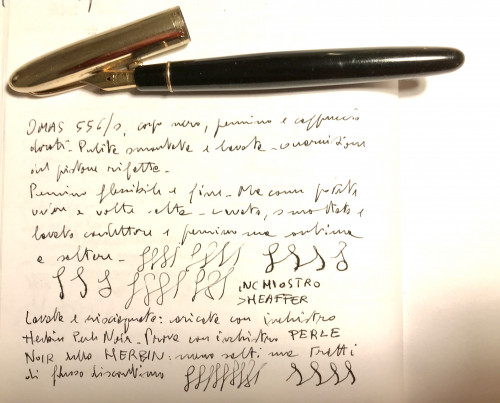 OMAS 556/S, corpo nero, pennino e cappuccio
dorati. Pulita smontata e lavata - guarnizione
del pistone rifatta -
Pennino flessibile e fine - Ma come potete
vedere a volte salta - lavato, smontato e
lavato conduttore e pennino ma continua
a saltare -
INCHIOSTRO
SHEAFFER
Lavata e risciacquata: caricata con inchiostro
Herbin Perle Noir - Prova con inchiostro PERLE
NOIR della HERBIN: meno salti ma tratti
di flusso discontinuo